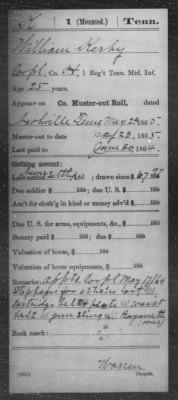 K | 1 (Mounted.) | Tenn.
William Kerby
Corpl, Co. A, 1 Reg't Tenn. Mtd. Inf.
Age 25 years.
Appear on Co. Muster-out Roll, dated
Nashville Tenn May 22 1865.
Muster-out to date May 22, 1865.
Last paid to June 30, 1864.
Clothing account:
Last settled 186 ; drawn since $67.95
Due soldier $ 100; due U. S. $ 100
Am't for cloth'g in kind or money adv'd $ 100
Due U. S. for arms, equipments, &c., $ 100
Bounty paid $ 100; due $ 100
Valuation of horse, $ 100
Valuation of horse equipments, $ 100
Remarks: Appt. Corpl May 1/64
Stoppage for
cartridge belt plate W waist
belt W gun sling Bayonett
Book mark:
Warren
Copyist.